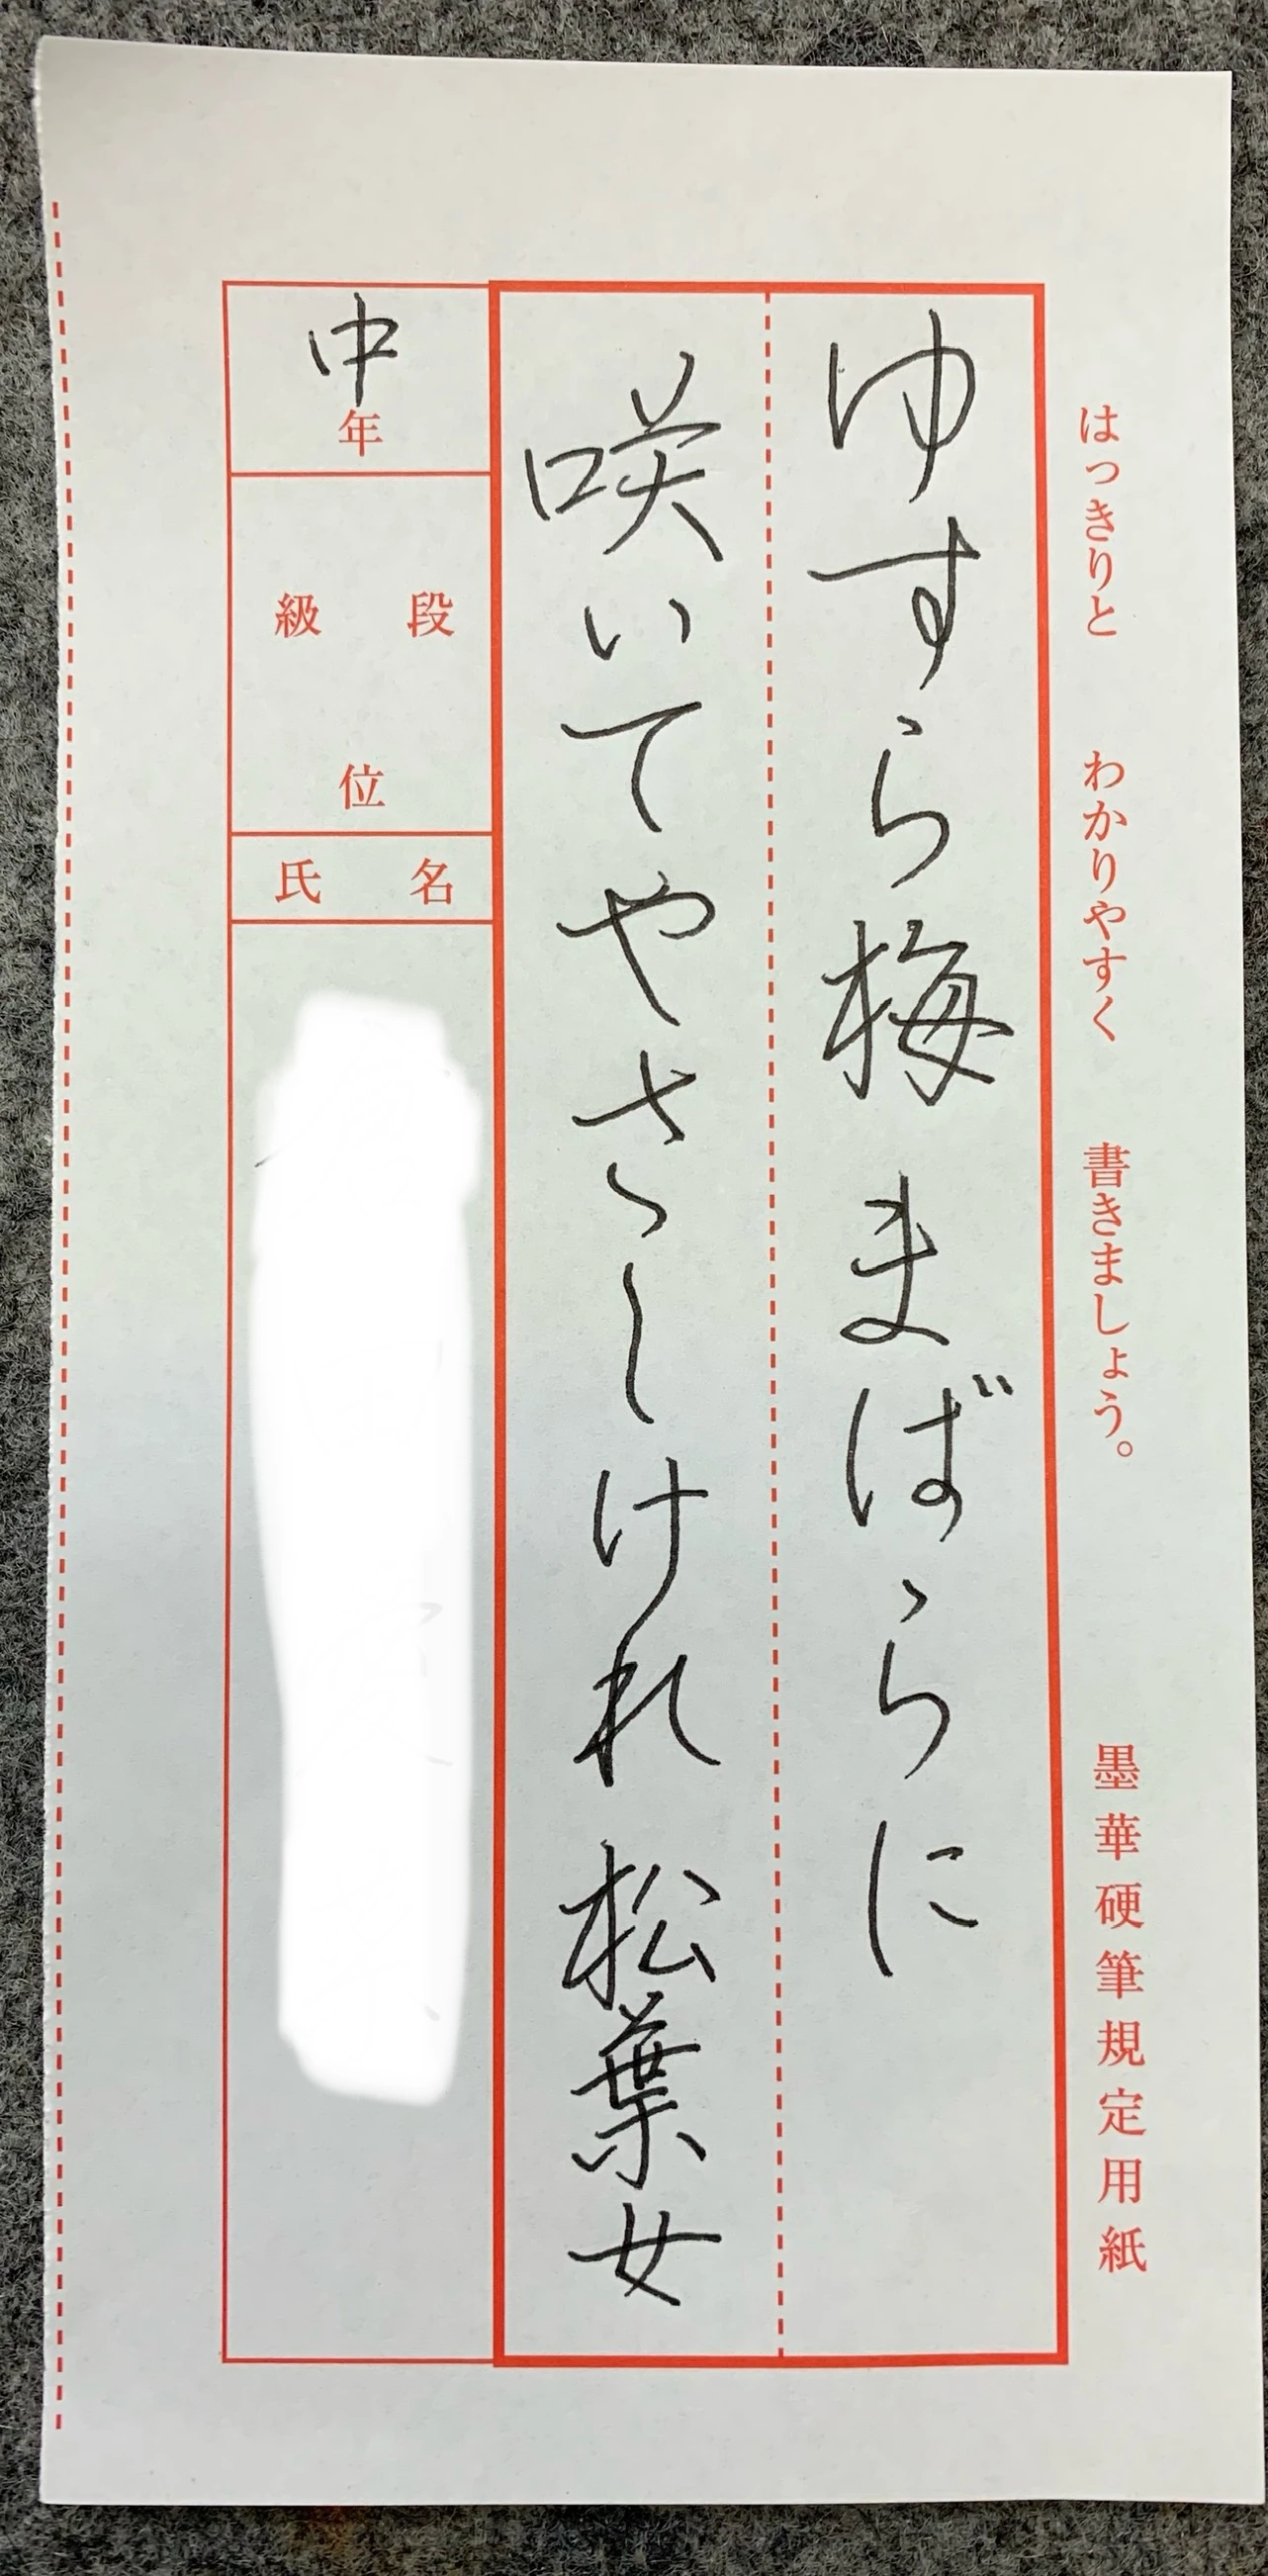 はっきりと わかりやすく 書きましょう。 墨華硬筆規定用紙
ゆすら梅まばらに
咲いてやさしけれ 松葉女
中年
段級
位
名氏